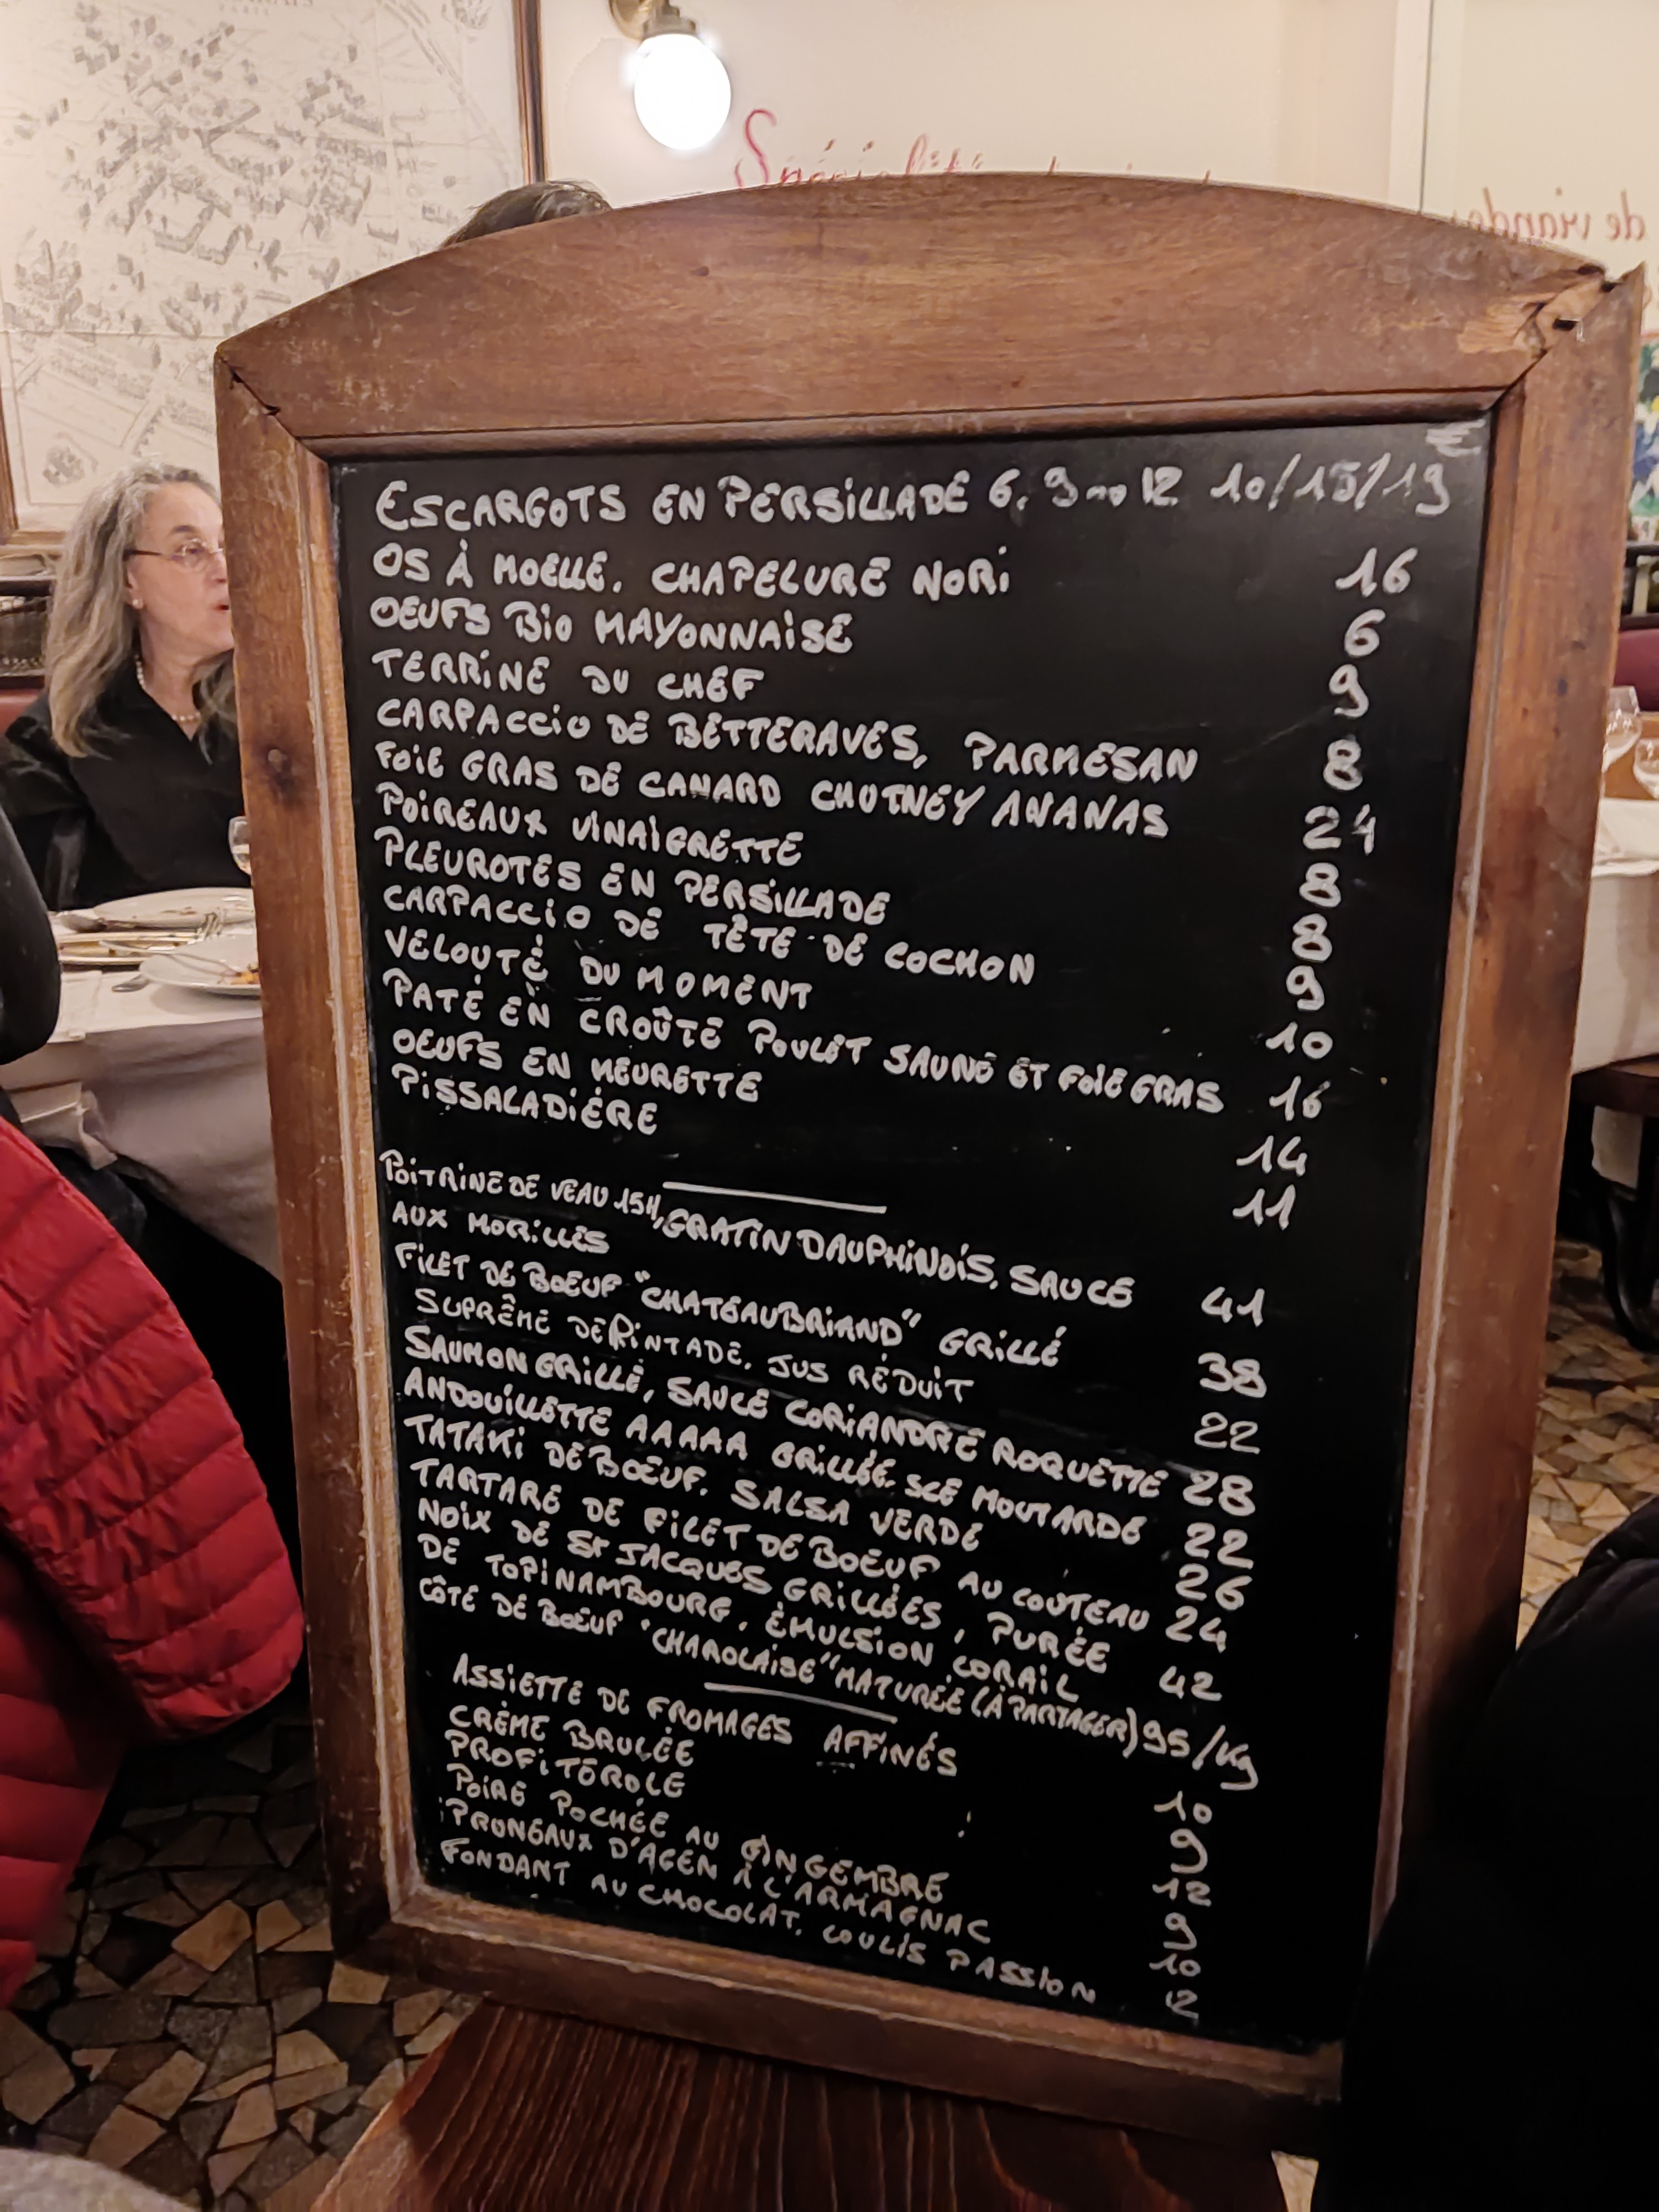 Spécialités
de viandes
€
ESCARGOTS EN PERSILLADE 6, 9 ou 12 10/15/19
OS À MOELLE, CHAPELURE NORI 16
OEUFS BIO MAYONNAISE 6
TERRINE DU CHEF 9
CARPACCIO DE BETTERAVES, PARMESAN 8
FOIE GRAS DE CANARD CHUTNEY ANANAS 24
POIREAUX VINAIGRETTE 8
PLEUROTES EN PERSILLADE 8
CARPACCIO DE TÊTE DE COCHON 9
VELOUTÉ DU MOMENT 10
PATÉ EN CROÛTE POULET SAUNE ET FOIE GRAS 16
OEUFS EN MEURETTE 14
PISSALADIÉRE 11
POITRINE DE VEAU 15H, GRATIN DAUPHINOIS, SAUCE
AUX MORILLES 41
FILET DE BOEUF "CHATEAUBRIAND" GRILLÉ 38
SUPRÊME DE PINTADE, JUS RÉDUIT 22
SAUMON GRILLÉ, SAUCE CORIANDRE ROQUETTE 28
ANDOUILLETTE AAAAA GRILLÉE. SCE MOUTARDE 22
TATAKI DE BOEUF. SALSA VERDE 26
TARTARE DE FILET DE BOEUF AU COUTEAU 24
NOIX DE ST JACQUES GRILLÉES, PURÉE
DE TOPINAMBOURG, ÉMULSION CORAIL 42
CÔTE DE BOEUF "CHAROLAISE" MATURÉE (À PARTAGER) 95/Kg
ASSIETTE DE FROMAGES AFFINÉS 10
CRÈME BRULÉE 9
PROFITÉROLE 12
POIRE POCHÉE AU GINGEMBRE 9
PRUNEAUX D'AGEN À L'ARMAGNAC 10
FONDANT AU CHOCOLAT, COULIS PASSION 12